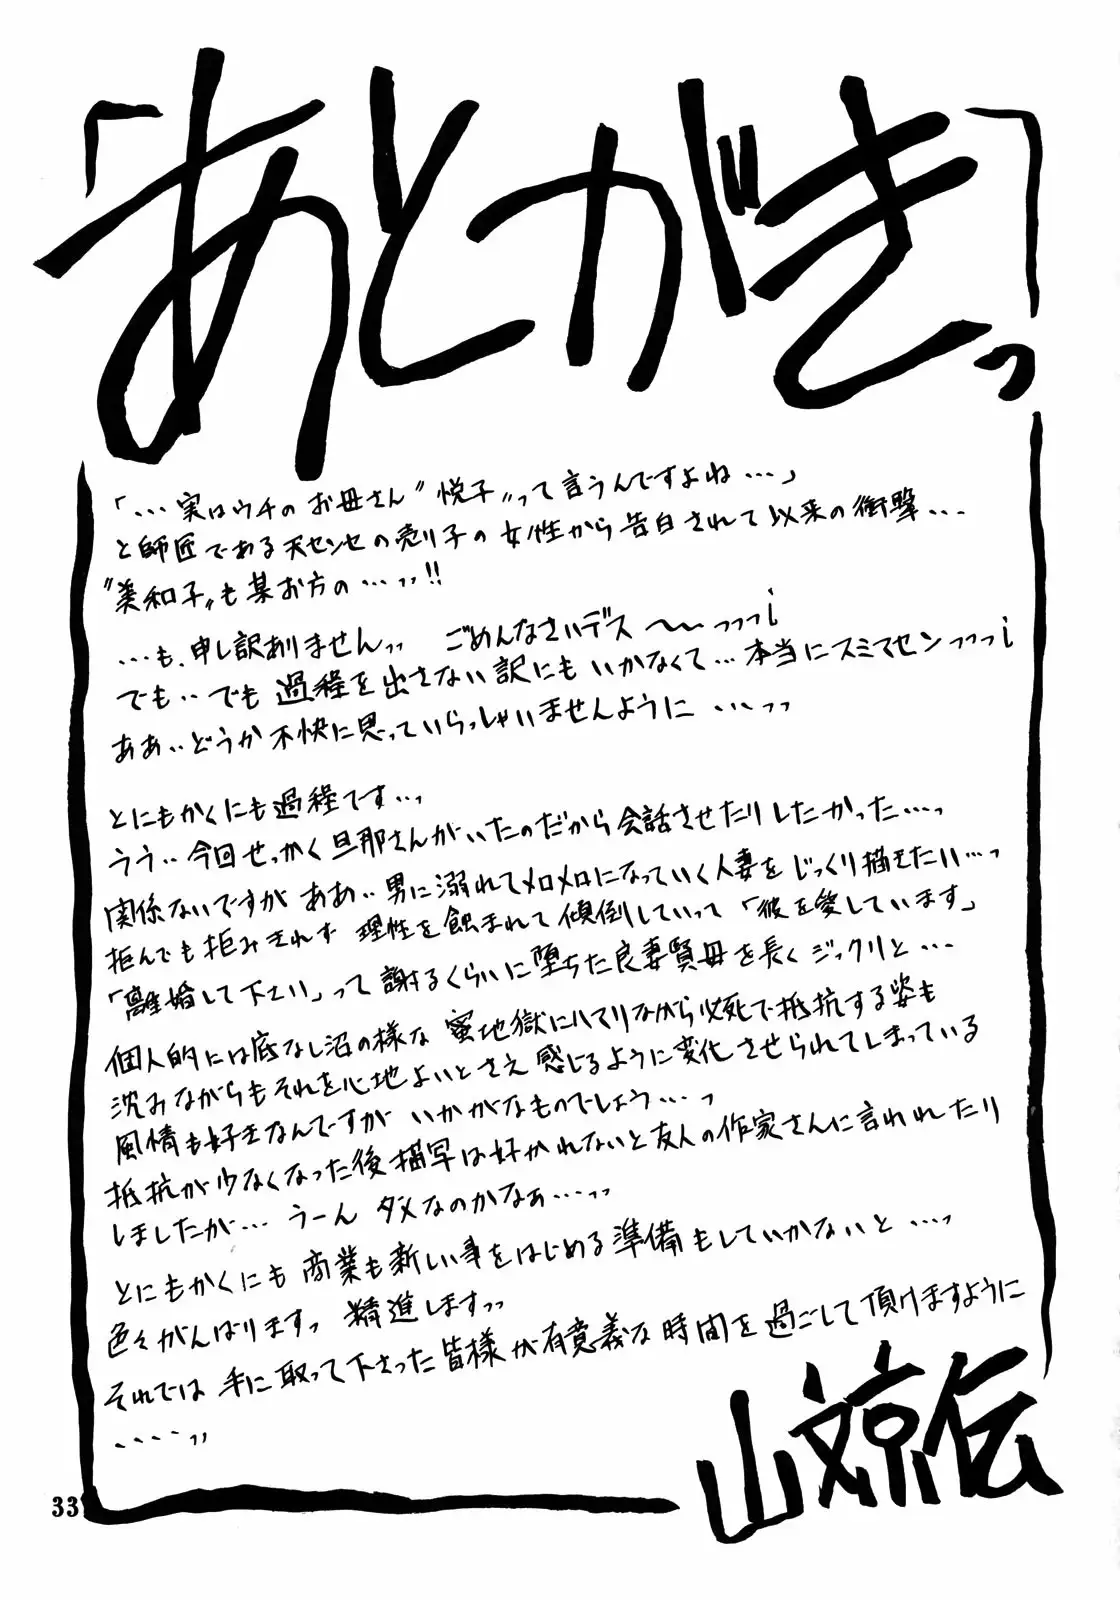 「あとがきっ」
「…実はウチのお母さん〝悦子〟って言うんですよね…」
と師匠である天センセの売り子の女性から告白されて以来の衝撃…
〝美和子〟も某お方の…ッッ!!
…も、申し訳ありませんッッ ごめんなさいデス〜〜っっっi
でも‥でも過程を出さない訳にもいかなくて…本当にスミマセンっっっi
ああ‥どうか不快に思っていらっしゃいませんように…っっ
とにもかくにも過程です…っ
うう‥今回せっかく旦那さんがいたのだから会話させたりしたかった…っ
関係ないですが ああ‥男に溺れてメロメロになっていく人妻をじっくり描きたい…っ
拒んでも拒みきれず 理性を蝕まれて傾倒していって「彼を愛しています」
「離婚して下さい」って謝るくらいに堕ちた良妻賢母を長くジックリと…
個人的には底なし沼の様な 蜜地獄にハマりながら必死で抵抗する姿も
沈みながらもそれを心地よいとさえ感じるように変化させられてしまっている
風情も好きなんですが いかがなものでしょう…っ
抵抗が少なくなった後描写は好かれないと友人の作家さんに言われたり
しましたが… うーん ダメなのかなぁ…っっ
とにもかくにも 商業も新しい事をはじめる準備もしていかないと…っ
色々がんばりますっ 精進しますっっ
それでは 手に取って下さった皆様が有意義な時間を過ごして頂けますように
‥‥‥っっ
山文京伝
33